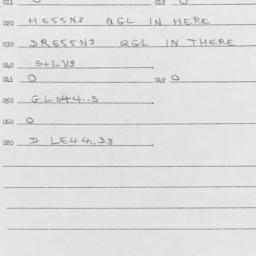 011 O 012 O
020 HESSN3 QGL IN HERE
030 DRESSN3 QGL IN THERE
040 S+L.V3
041 O 042 O
050 GL044..S
060 O
080 D LE44..D3